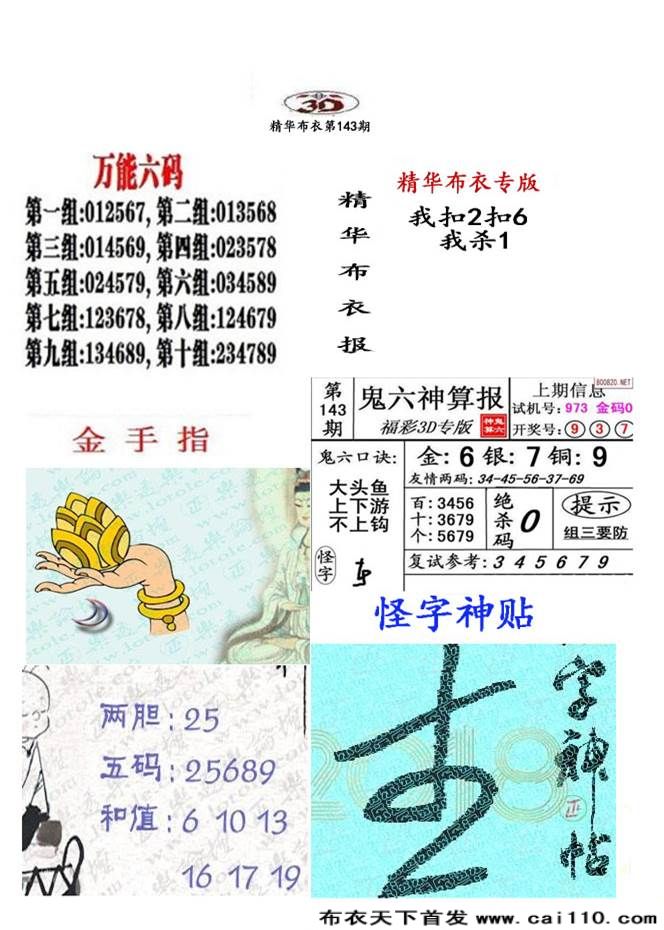 3D
精华布衣第143期
万能六码
第一组:012567, 第二组:013568
第三组:014569, 第四组:023578
第五组:024579, 第六组:034589
第七组:123678, 第八组:124679
第九组:134689, 第十组:234789
精华布衣报
精华布衣专版
我扣2扣6
我杀1
第143期
鬼六神算报
福彩3D专版
神鬼算六
上期信息
800820.NET
试机号: 973 金码0
开奖号: 9 3 7
鬼六口诀:
大头鱼
上下游
不上钩
怪字
金: 6 银: 7 铜: 9
友情两码: 34-45-56-37-69
百: 3456
十: 3679
个: 5679
绝杀码 0
提示
组三要防
复试参考: 3 4 5 6 7 9
金手指
怪字神贴
两胆: 25
五码: 25689
和值: 6 10 13
16 17 19
2018
字神帖
正
布衣天下首发 www.cai110.com